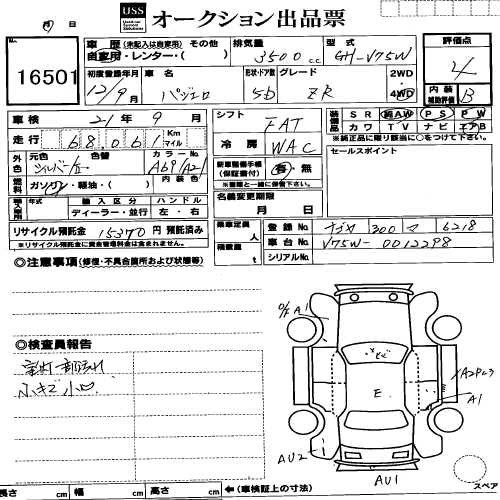 月 日
USS Used car System Solutions オークション出品票
No. 16501
車歴 (未記入は自家用) その他
自家用・レンター・( )
排気量 3500 cc
型式 GH-V75W
評価点 4
内装補助評価 B
初度登録年月 12/9月
車名 パジェロ
形状・ドア数 5D
グレード ZR
2WD・4WD
車検 21年 9月
走行 68,061 Km マイル
シフト FAT
冷房 WAC
装備品 SR 純AW PS PW
カワ TV ナビ エアB
※純正品に限り該当に○をつけて下さい。
外色 元色 シルバー/ 色替
カラーNo. A69/A21
内装色
燃料 ガソリン・軽油・( )
新車整備手帳(保証書付) 有・無
※実車と一緒に保管下さい。
セールスポイント
輸入車用 年式 輸入区分 ディーラー・並行
ハンドル 左・右
名義変更期限 月 日
リサイクル預託金 15370円 預託済み
※リサイクル預託金に資金管理料金は含まず。
乗車定員 人
積載量 t
登録No. 300 マ 6218
車台No. V75W-0012298
シリアルNo.
◎注意事項 (修復・不具合箇所および状態等)
◎検査員報告
キズ小凹
A1
A1
E
AU2
AU1
スペア
長さ cm 幅 cm 高さ cm ←(車検証上の寸法)